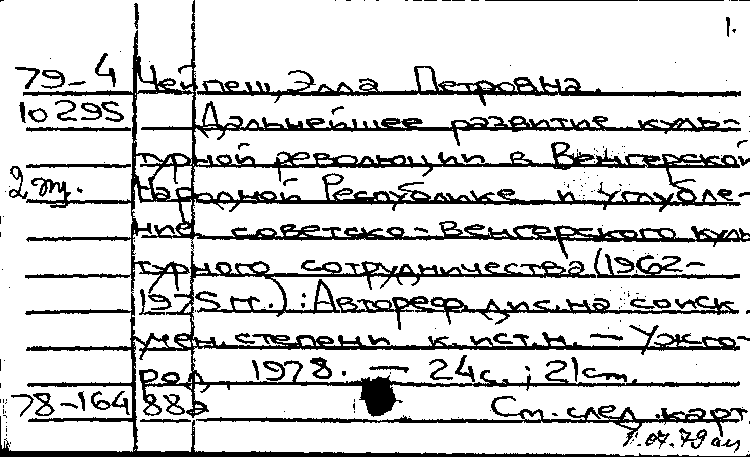 1.
79-4 Чейпеш, Элла Петровна.
10295 Дальнейшее развитие куль-
турной революции в Венгерской
2 эк. Народной Республике и углубле-
ние советско-венгерского куль
турного сотрудничества (1962-
1975 гг.) : Автореф. дис. на соиск.
учен. степени к. ист. н. — Ужго-
род, 1978. — 24 с. ; 21 см.
78-16488а См. след. карт.
07.79